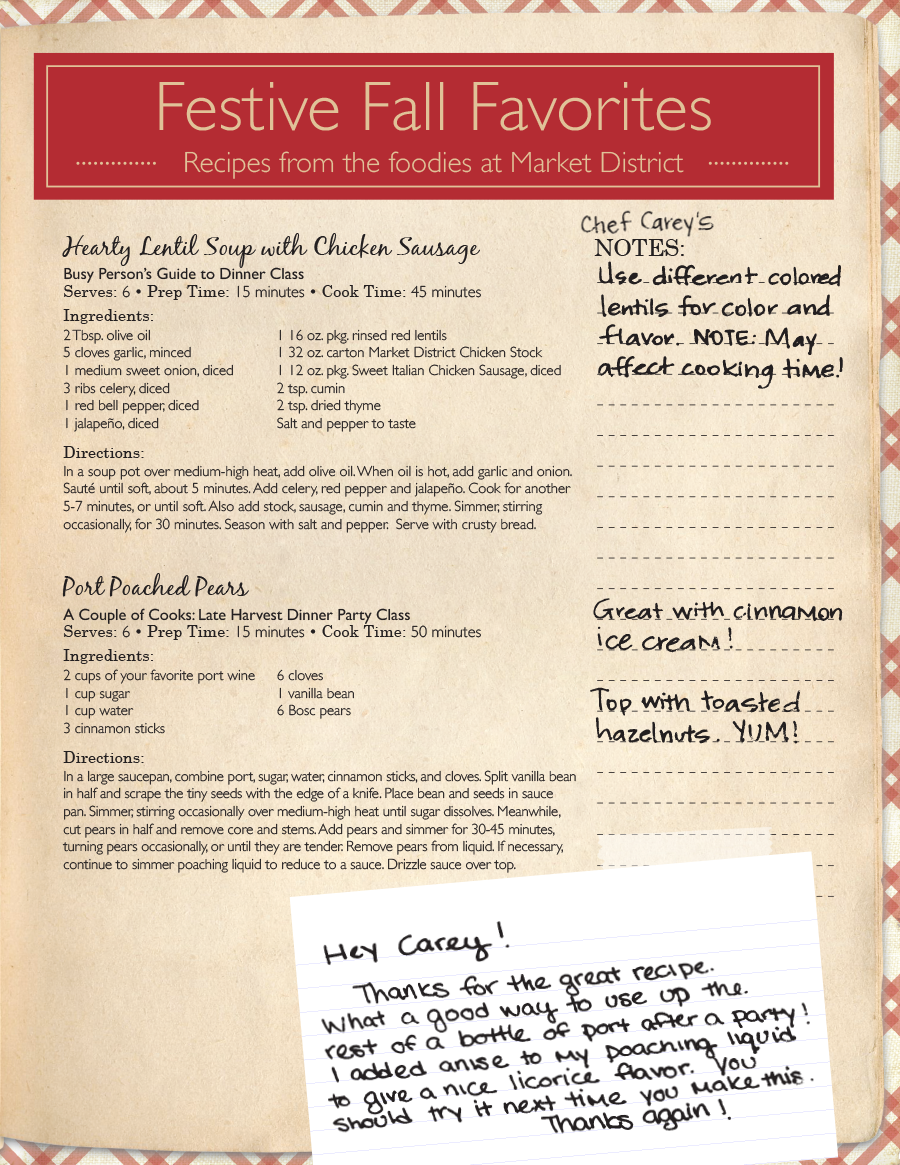 Festive Fall Favorites
Recipes from the foodies at Market District
Hearty Lentil Soup with Chicken Sausage
Busy Person's Guide to Dinner Class
Serves: 6 • Prep Time: 15 minutes • Cook Time: 45 minutes
Ingredients:
2 Tbsp. olive oil
5 cloves garlic, minced
1 medium sweet onion, diced
3 ribs celery, diced
1 red bell pepper, diced
1 jalapeño, diced
1 16 oz. pkg. rinsed red lentils
1 32 oz. carton Market District Chicken Stock
1 12 oz. pkg. Sweet Italian Chicken Sausage, diced
2 tsp. cumin
2 tsp. dried thyme
Salt and pepper to taste
Directions:
In a soup pot over medium-high heat, add olive oil. When oil is hot, add garlic and onion.
Sauté until soft, about 5 minutes. Add celery, red pepper and jalapeño. Cook for another
5-7 minutes, or until soft. Also add stock, sausage, cumin and thyme. Simmer, stirring
occasionally, for 30 minutes. Season with salt and pepper. Serve with crusty bread.
Port Poached Pears
A Couple of Cooks: Late Harvest Dinner Party Class
Serves: 6 • Prep Time: 15 minutes • Cook Time: 50 minutes
Ingredients:
2 cups of your favorite port wine
1 cup sugar
1 cup water
3 cinnamon sticks
6 cloves
1 vanilla bean
6 Bosc pears
Directions:
In a large saucepan, combine port, sugar, water, cinnamon sticks, and cloves. Split vanilla bean
in half and scrape the tiny seeds with the edge of a knife. Place bean and seeds in sauce
pan. Simmer, stirring occasionally over medium-high heat until sugar dissolves. Meanwhile,
cut pears in half and remove core and stems. Add pears and simmer for 30-45 minutes,
turning pears occasionally, or until they are tender. Remove pears from liquid. If necessary,
continue to simmer poaching liquid to reduce to a sauce. Drizzle sauce over top.
Chef Carey's
NOTES:
Use different colored
lentils for color and
flavor. NOTE: May
affect cooking time!
Great with cinnamon
ice cream!
Top with toasted
hazelnuts. YUM!
Hey Carey!
Thanks for the great recipe.
What a good way to use up the
rest of a bottle of port after a party!
I added anise to my poaching liquid
to give a nice licorice flavor. You
should try it next time you make this.
Thanks again!